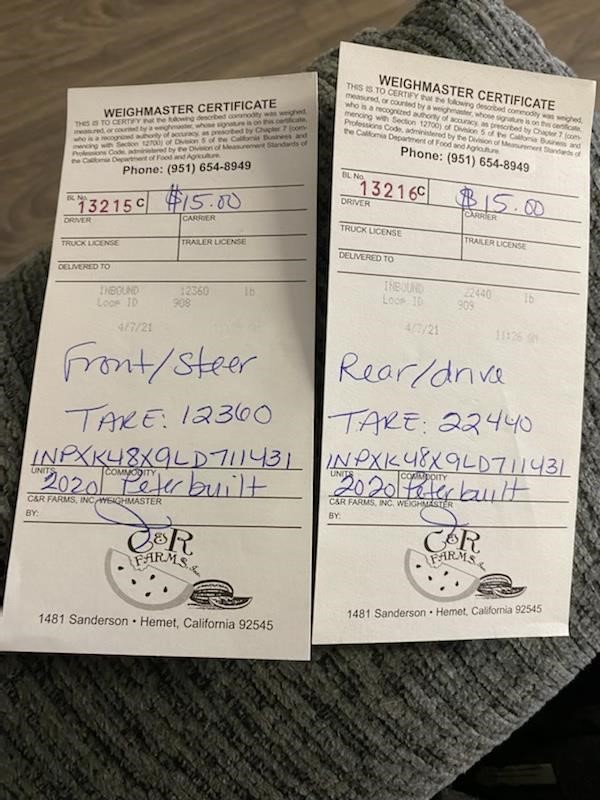 WEIGHMASTER CERTIFICATE
THIS IS TO CERTIFY that the following described commodity was weighed,
measured, or counted by a weighmaster, whose signature is on this certificate,
who is a recognized authority of accuracy, as prescribed by Chapter 7 (com-
mencing with Section 12700) of Division 5 of the California Business and
Professions Code, administered by the Division of Measurement Standards of
the California Department of Food and Agriculture.
Phone: (951) 654-8949
BL No.
13215 C $15.00
DRIVER CARRIER
TRUCK LICENSE TRAILER LICENSE
DELIVERED TO
INBOUND 12360 lb
Loop ID 908
4/7/21
Front/Steer
TARE: 12360
1NPXK48X9LD711431
UNITS COMMODITY
2020 Peterbuilt
C&R FARMS, INC. WEIGHMASTER
BY:
C&R
FARMS, Inc.
1481 Sanderson • Hemet, California 92545
WEIGHMASTER CERTIFICATE
THIS IS TO CERTIFY that the following described commodity was weighed,
measured, or counted by a weighmaster, whose signature is on this certificate,
who is a recognized authority of accuracy, as prescribed by Chapter 7 (com-
mencing with Section 12700) of Division 5 of the California Business and
Professions Code, administered by the Division of Measurement Standards of
the California Department of Food and Agriculture.
Phone: (951) 654-8949
BL No.
13216 C $15.00
DRIVER CARRIER
TRUCK LICENSE TRAILER LICENSE
DELIVERED TO
INBOUND 22440 lb
Loop ID 909
4/7/21 11:26 AM
Rear/drive
TARE: 22440
1NPXK48X9LD711431
UNITS COMMODITY
2020 Peterbuilt
C&R FARMS, INC. WEIGHMASTER
BY:
C&R
FARMS, Inc.
1481 Sanderson • Hemet, California 92545